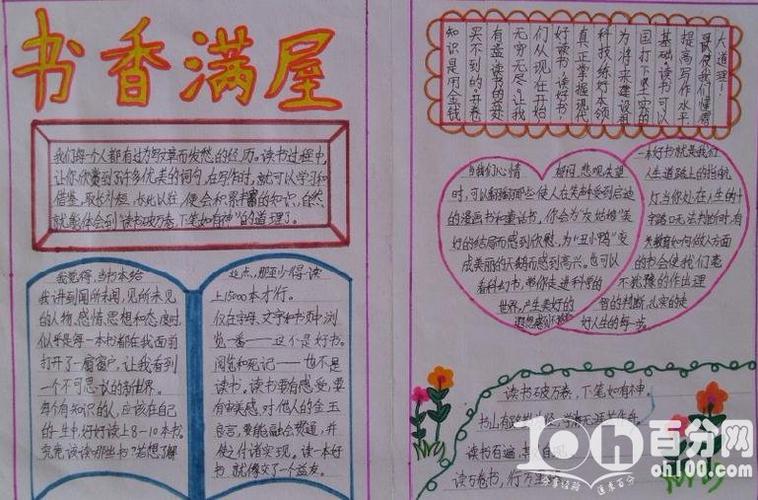 书香满屋
我们每个人都有过为写文章而发愁的经历。读书过程中,
让你欣赏到了许多优美的词句,在写作时,就可以学习和
借鉴,取长补短,
便会积累丰富的知识,自然
就能体会到"读书破万卷,下笔如有神"的道理了。
我觉得,当书本给
我讲到闻所未闻,见所未见
的人物,感情,思想和态度时,
似乎是每一本书都在我面前
打开了一扇窗户,让我看到
一个不可思议的新世界。
每个有知识的人,应该在自己
的一生中,好好读上8-10本书。
究竟该读哪些书?若想了解
这点,那至少得读
上15000本才行。
仅在字母、文字和书页中浏
览一番——这不是好书。
阅览和死记——也不是
读书。读书要有感受,要
有审美感,对他人的金玉
良言,要能融会贯通,并
使之付诸实现。读一本好
书,就像交了一个益友。
大道理!
能使我们懂得
提高写作水平
基础。读书可以
国打下坚实的
为将来建设祖
科技练好本领
真正掌握现代
好读书,读好书!
们从现在开始
无穷无尽。让我
有益,读书的益处
买不到的。开卷
知识是用金钱
当我们心情
郁闷,悲观失望
时,可以翻翻那些使人在失败中受到启迪
的漫画书和童话书,你会为"灰姑娘"美
好的结局而感到欣慰,为"丑小鸭"变
成美丽的天鹅而感到高兴。也可以
看科幻书,带你走进科学的
世界,产生美好的
一本好书就是我们
人生道路上的指航
灯。当你处在人生的十
字路口无法判断时,有
关教育如何做人方面
的书会使我们毫
不犹豫的作出理
智的判断,扎实的走
好人生的每一步。
读书破万卷,下笔如有神。
书山有路
读书百遍,其
读万卷书,行万里
百分网
oh100.com